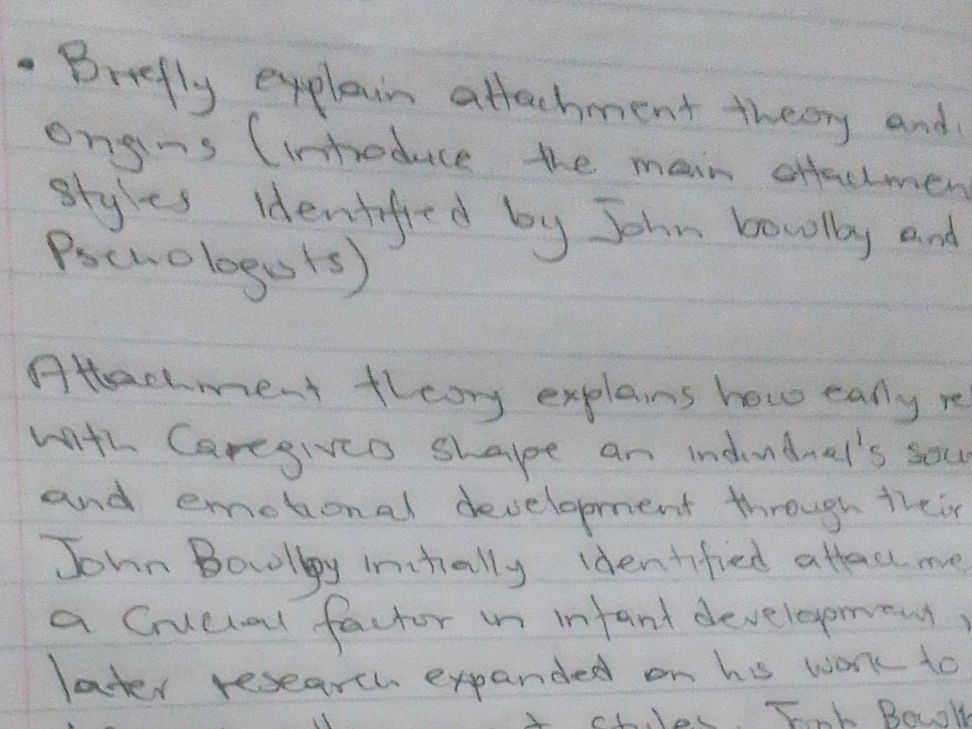 • Briefly explain attachment theory and
origins (introduce the main attachmen
styles identified by John bowlby and
Pschologists)
Attachment theory explains how early re
with Caregivers shape an individual's
and emotional development through their
John Bowlby initially identified attachme
a Crucial factor in infant development,
later research expanded on his work to
styles. John Bowlb